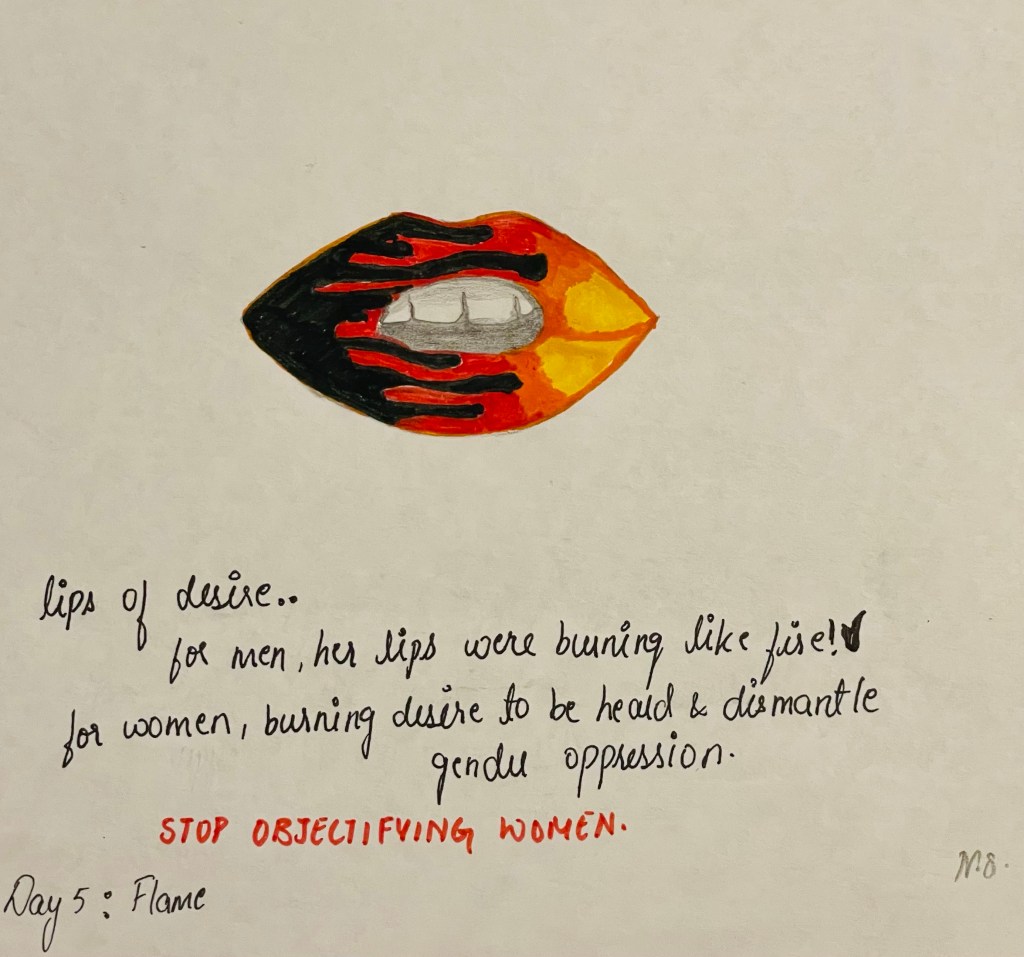 lips of desire..
for men, her lips were burning like fire!
for women, burning desire to be heard & dismantle
gender oppression.
STOP OBJECTIFYING WOMEN.
N.S.
Day 5 : Flame